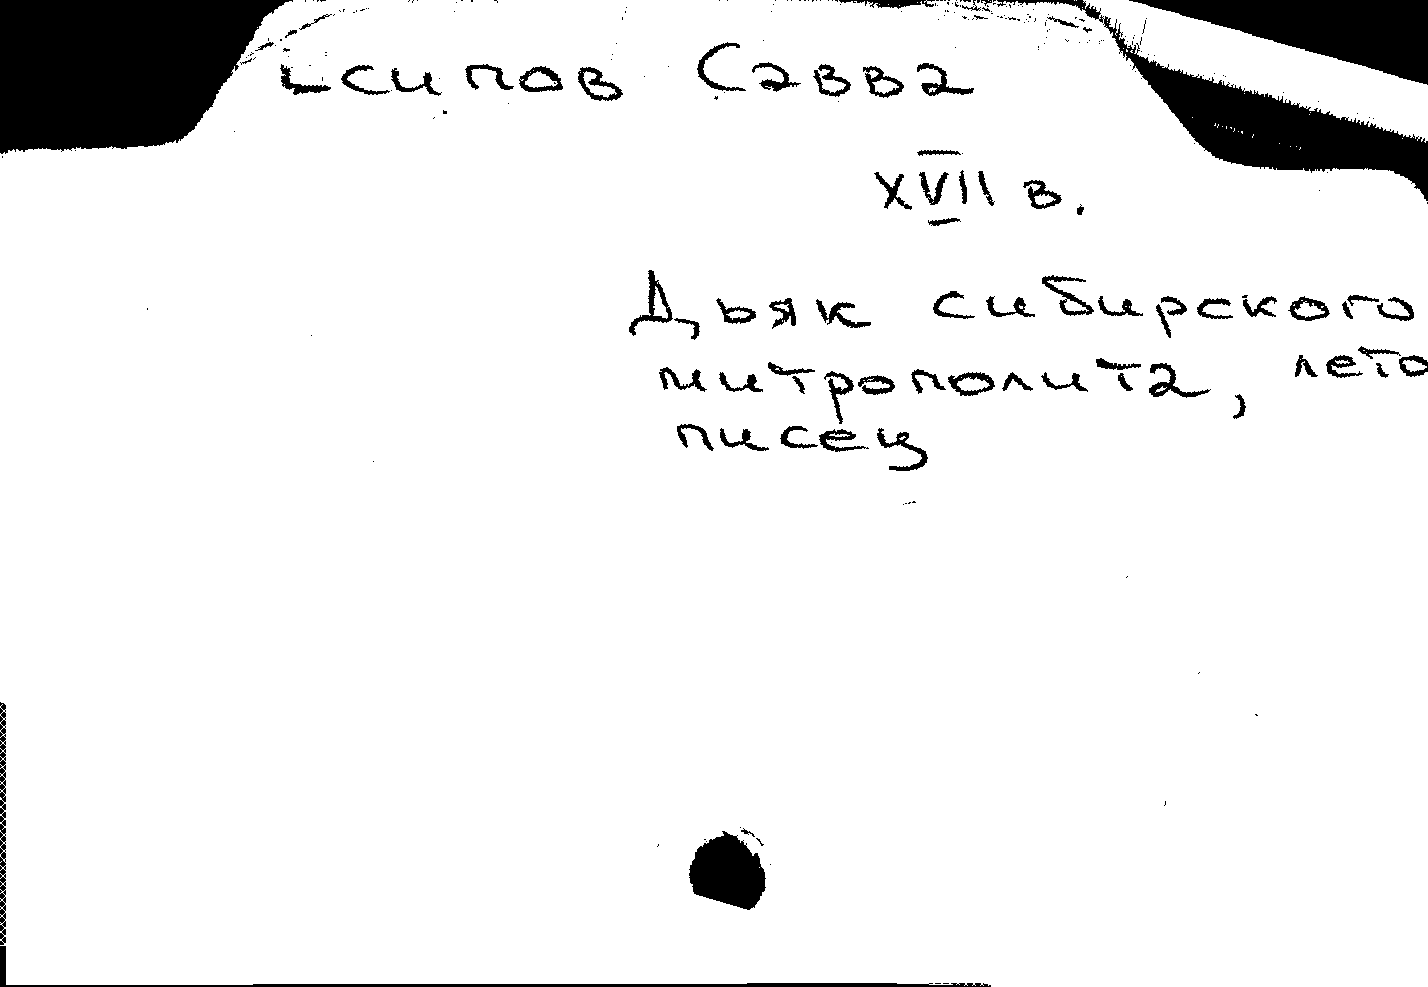 Есипов Савва
XVII в.
Дьяк сибирского
митрополита, лето
писец